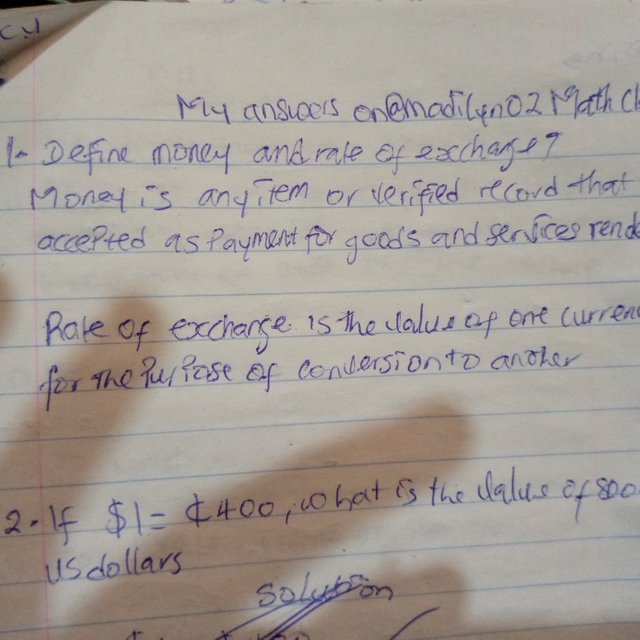 My answers on @madilyn02 Math Ch
1- Define money and rate of exchange?
Money is any item or verified record that
accepted as Payment for goods and services rende
Rate of exchange is the value of one curren
for the Purpose of conversion to another
2. If $1 = ₵400, what is the value of 800
US dollars
Solution